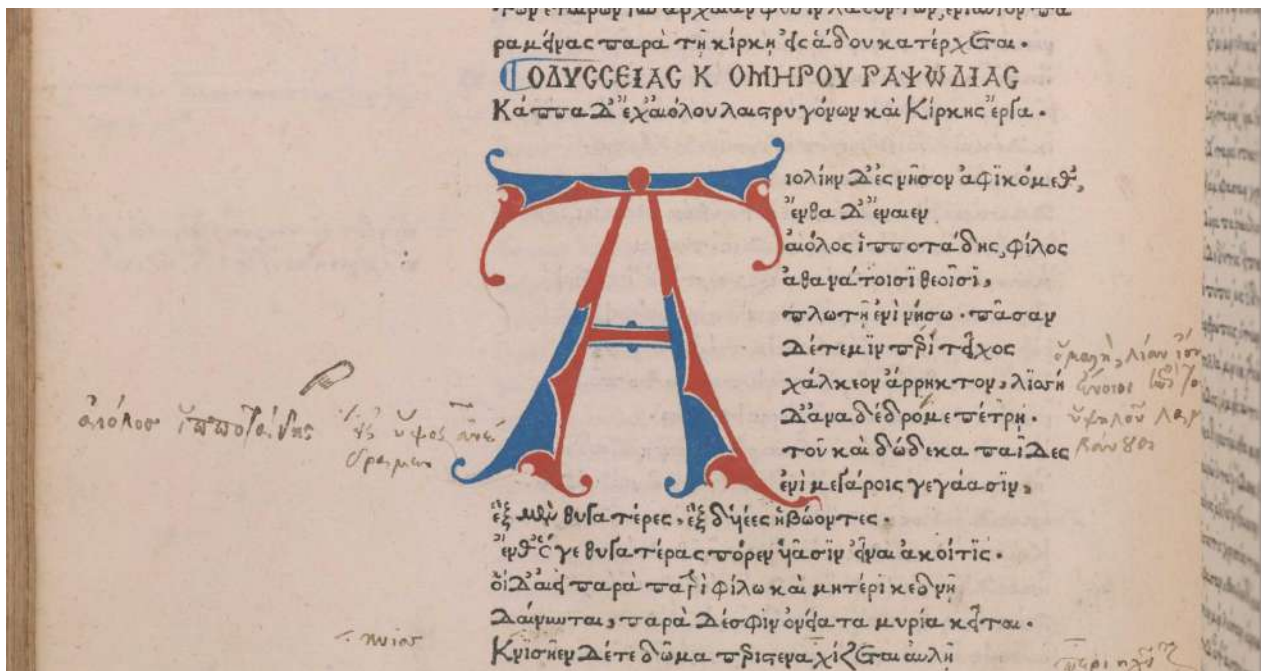 των ἑταίρων
ραμείνας παρὰ τῆ κίρκη εἰς ἅδου κατέρχεται·
ΟΔΥΣΣΕΙΑΣ Κ ΟΜΗΡΟΥ ΡΑΨΩΔΙΑΣ
Κάππα δ' ἔχ' αἰόλου λαιστρυγόνων καὶ Κίρκης ἔργα·
Αἰολίην δ' ἐς νῆσον ἀφικόμεθ',
ἔνθα δ' ἔναιεν
αἰόλος ἱπποτάδης, φίλος
ἀθανάτοισι θεοῖσι,
πλωτῆ ἐνὶ νήσω· πᾶσαν
δέ τε μιν πέρι τεῖχος
χάλκεον ἄρρηκτον, λισσὴ
δ' ἀναδέδρομε πέτρη·
τοῦ καὶ δώδεκα παῖδες
ἐνὶ μεγάροις γεγάασιν,
ἓξ μὲν θυγατέρες, ἓξ δ' υἱέες ἡβώοντες·
ἔνθ' ὅγε θυγατέρας πόρεν υἱάσιν εἶναι ἀκοίτις·
οἱ δ' αἰεὶ παρὰ πατρὶ φίλω καὶ μητέρι κεδνῆ
δαίνυνται, παρὰ δέ σφιν ὀνείατα μυρία κεῖται·
Κνισῆεν δέ τε δῶμα περιστεναχίζεται αὐλῆ
αἰόλος ἱπποτάδης
εἰς ὕψος ἀνέ
δραμεν